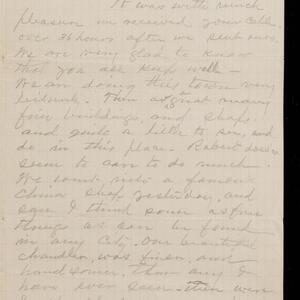 It was with much
pleasure we received your Cable
over 36 hours after we sent ours.
We are very glad to know
that you all keep well —
We are doing this town very
leisurely. There are great many
fine buildings, and shops
and quite a little to see, and
do in this place. Robert doesn't
seem to care to do much.
We went into a famous
China shop yesterday, and
saw I think some as fine
things as can be found
in any City. One beautiful
chandelier, was finer, and
handsomer, than any I
have ever seen. There were